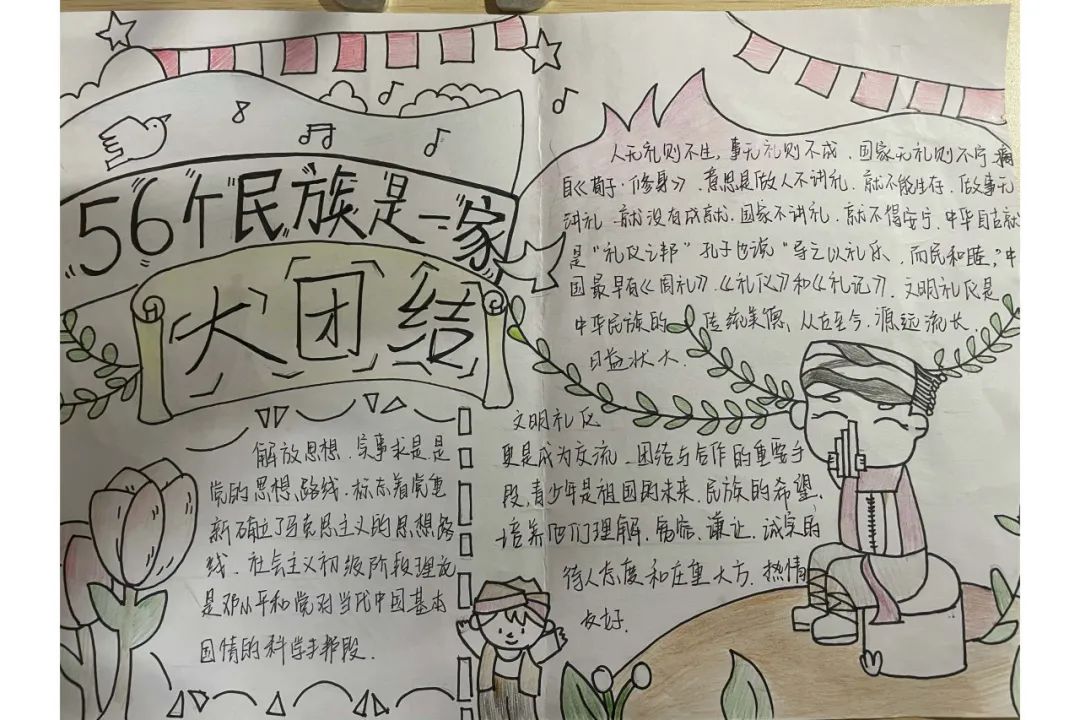 56个民族是一家
大团结
人无礼则不生，事无礼则不成，国家无礼则不宁
自《荀子·修身》，意思是做人不讲礼，就不能生存，做事无
讲礼，就没有成就，国家不讲礼，就不得安宁，中华自古就
是“礼仪之邦”孔子也说“导之以礼乐，而民和睦，”中
国最早有《周礼》，《礼仪》和《礼记》，文明礼仪是
中华民族的传统美德，从古至今，源远流长，
日益状大.
解放思想、实事求是是
党的思想路线，标志着党重
新确立了马克思主义的思想路
线，社会主义初级阶段理论
是邓小平和党对当代中国基本
国情的科学
文明礼仪
更是成为交流、团结与合作的重要手
段，青少年是祖国的未来，民族的希望，
培养他们理解、宽容、谦让、诚实的
待人态度和庄重大方，热情
友好.